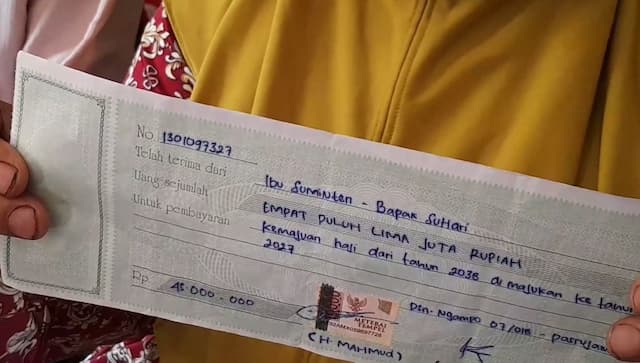 No. 1301097327
Telah terima dari Ibu Suminten - Bapak SuHari
Uang sejumlah EMPAT PULUH LIMA JUTA RUPIAH
Untuk pembayaran Kemajuan haji dari tahun 2038 di majukan ke tahun
2027
Rp. 45.000.000
Dsn. Ngampo 07/
METERAI
TEMPEL
(H. MAHMUD)